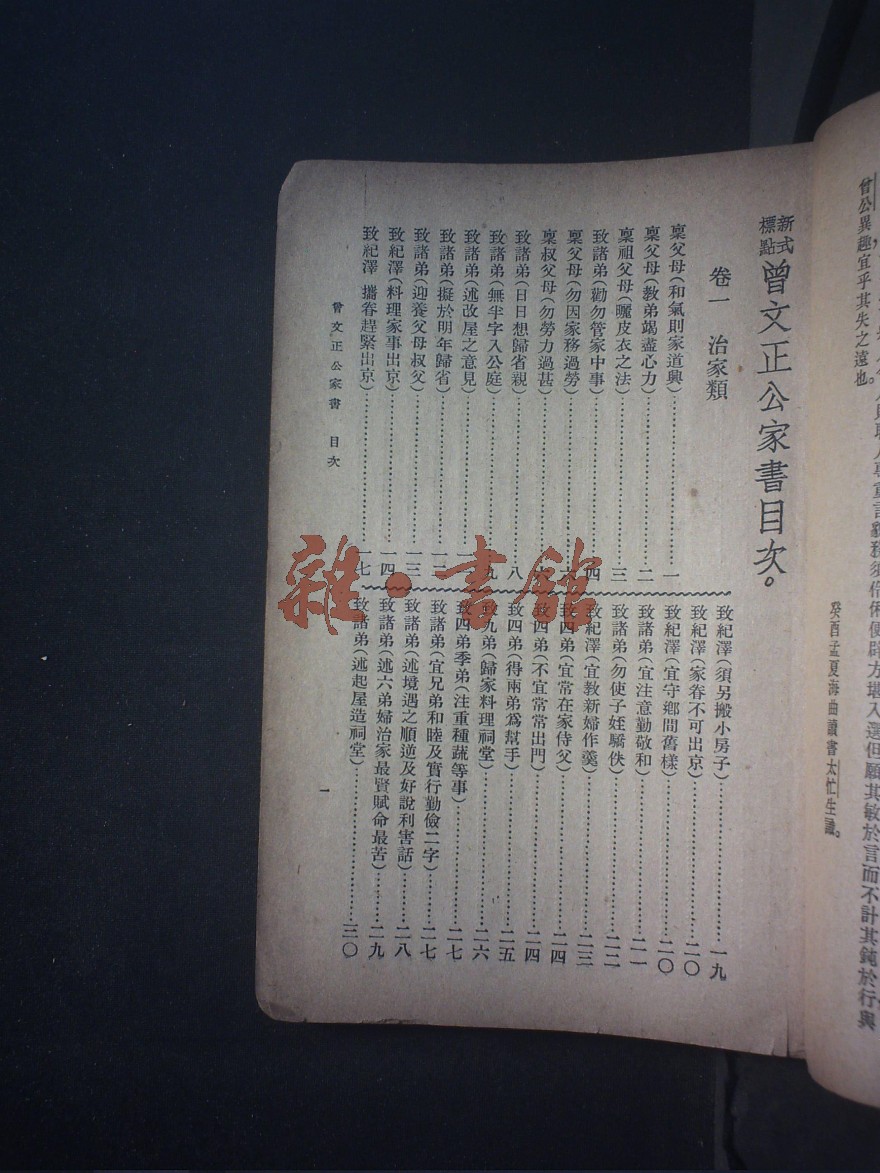 新式標點曾文正公家書目次。
卷一 治家類
稟父母(和氣則家道興)……一
稟父母(教弟竭盡心力)……二
稟祖父母(曬皮衣之法)……三
致諸弟(勸勿管家中事)……四
稟父母(勿因家務過勞)
稟叔父母(勿勞力過甚)
致諸弟(日日想歸省親)……八
致諸弟(無半字入公庭)……九
致諸弟(述改屋之意見)
致諸弟(擬於明年歸省)
致諸弟(迎養父母叔父)……一三
致紀澤(料理家事出京)……一四
致紀澤 攜眷趕緊出京)……一七
致紀澤(須另搬小房子)……一九
致紀澤(家眷不可出京)……二〇
致紀澤(宜守鄉間舊樣)……二〇
致諸弟(宜注意勤敬和)……二一
致諸弟(勿使子姪驕佚)……二二
致紀澤(宜教新婦作羹)……二三
致四弟(宜常在家侍父)……二四
致四弟(不宜常常出門)……二四
致四弟(得兩弟爲幫手)……二五
致九弟(歸家料理祠堂)……二六
致四弟季弟(注重種蔬等事)……二七
致諸弟(宜兄弟和睦及實行勤儉二字)……二七
致諸弟(述境遇之順逆及好說利害話)……二八
致諸弟(述六弟婦治家最賢賦命最苦)……二九
致諸弟(述起屋造祠堂)……三〇
曾文正公家書 目次
一
務須俗俐便辟方堪入選但願其敏於言而不計其鈍於行與
曾公異趣宜乎其失之遠也。
癸酉孟夏海曲讀書太忙生識。
雜·書館